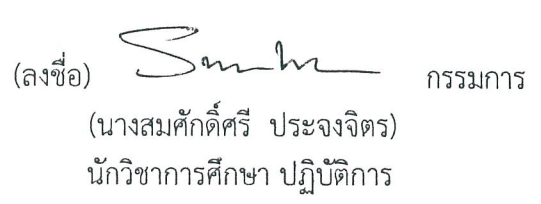 (ลงชื่อ) กรรมการ
(นางสมศักดิ์ศรี ประจงจิตร)
นักวิชาการศึกษา ปฏิบัติการ